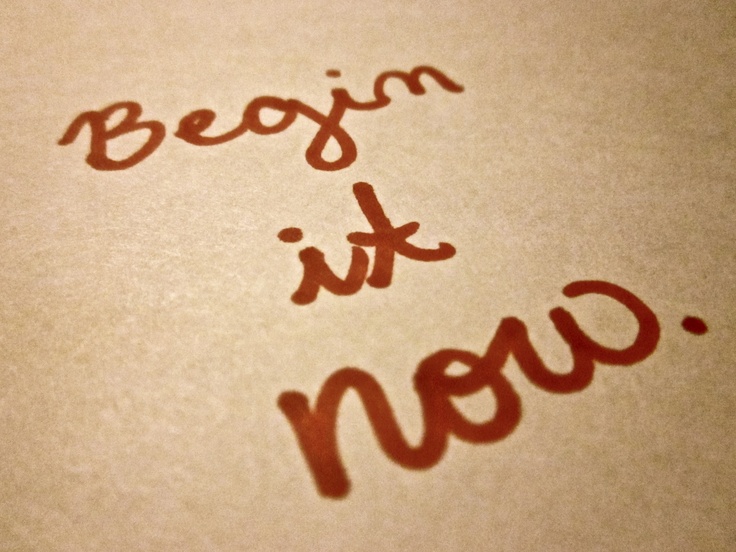 Begin
it
now.